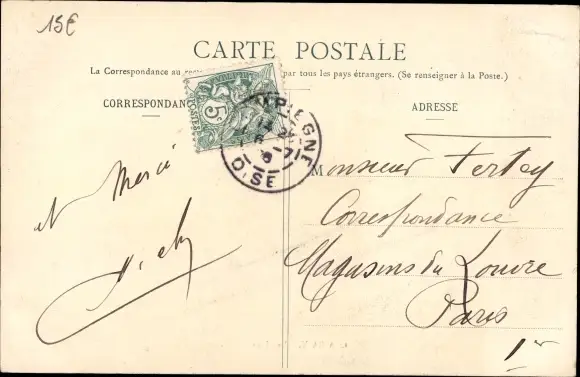 15€
CARTE POSTALE
La Correspondance au par tous les pays étrangers. (Se renseigner à la Poste.)
CORRESPONDANC
ADRESSE
5c
OISE
et Merci
Monsieur Fertey
Correspondance
Magasins du Louvre
Paris
1er